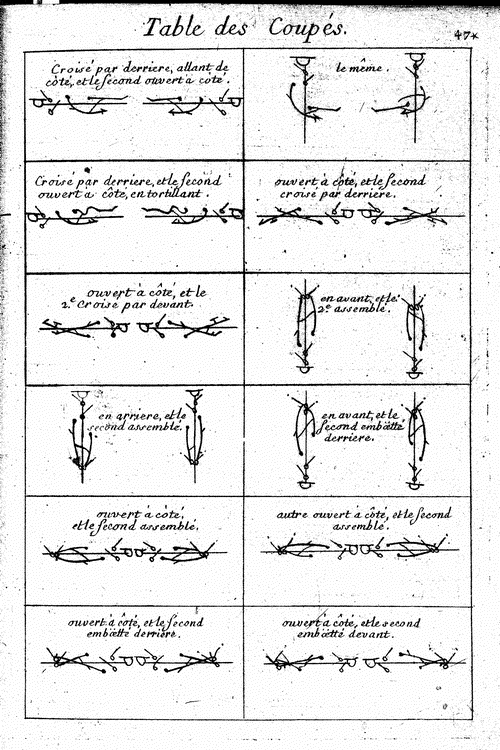 Table des Coupés.
47*
Croisé par derriere, allant de
côté, et le second ouvert a coté.
le même.
Croisé par derriere, et le second
ouvert a côte, en tortillant.
ouvert à côté, et le second
croisé par derriere.
ouvert à côté, et le
2.e Croisé par devant.
en avant, et le
2.e assemblé.
en arriere, et le
second assemblé.
en avant, et le
second emböetté
derriere.
ouvert à côté,
et le second assemblé.
autre ouvert à côté, et le second
assemblé.
ouvert à côté, et le second
emböetté derriére.
ouvert à côté, et le second
emböetté devant.